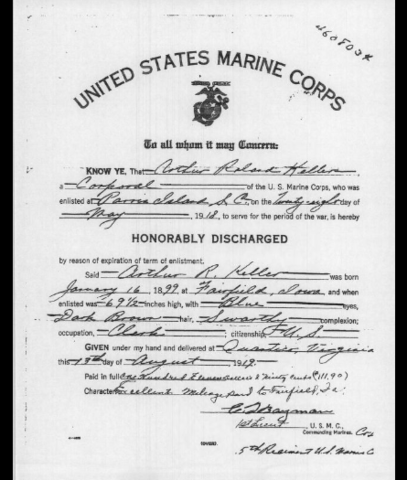 460803
UNITED STATES MARINE CORPS
To all whom it may Concern:
KNOW YE, That Arthur Roland Keller
a Corporal of the U. S. Marine Corps, who was
enlisted at Parris Island, S.C., on the Twenty eight day of
May, 1918, to serve for the period of the war, is hereby
HONORABLY DISCHARGED
by reason of expiration of term of enlistment.
Said Arthur R. Keller was born
January 16, 1899, at Fairfield, Iowa, and when
enlisted was 69 1/2 inches high, with Blue eyes,
Dark Brown hair, Swarthy complexion;
occupation, Clerk citizenship, U S
GIVEN under my hand and delivered at Quantico, Virginia
this 13th day of August 1919.
Paid in full One hundred Eleven & Ninety cents ($111.90)
Character Excellent Mileage paid to Fairfield, Ia.
1st Lieut U. S. M. C.,
Commanding Marines. Co
5th Regiment U.S. Marine C